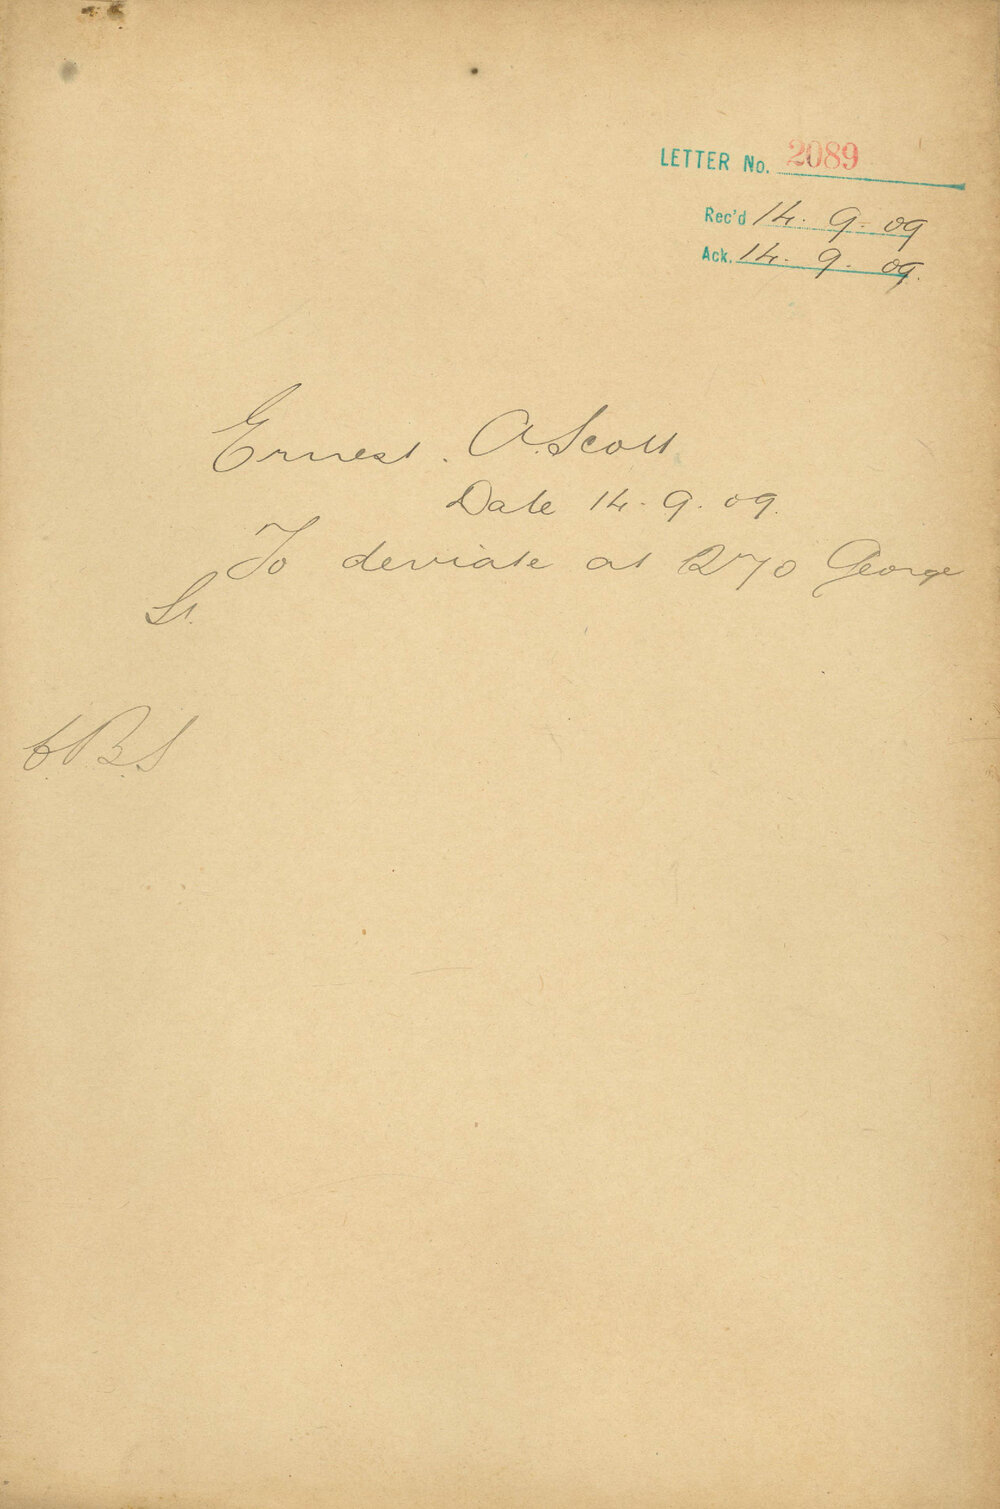 LETTER No. 2089
Rec'd 14. 9. 09
Ack. 14. 9. 09.
Ernest. A. Scott
Date 14. 9. 09.
To deviate at 270 George
St.
C.B.S